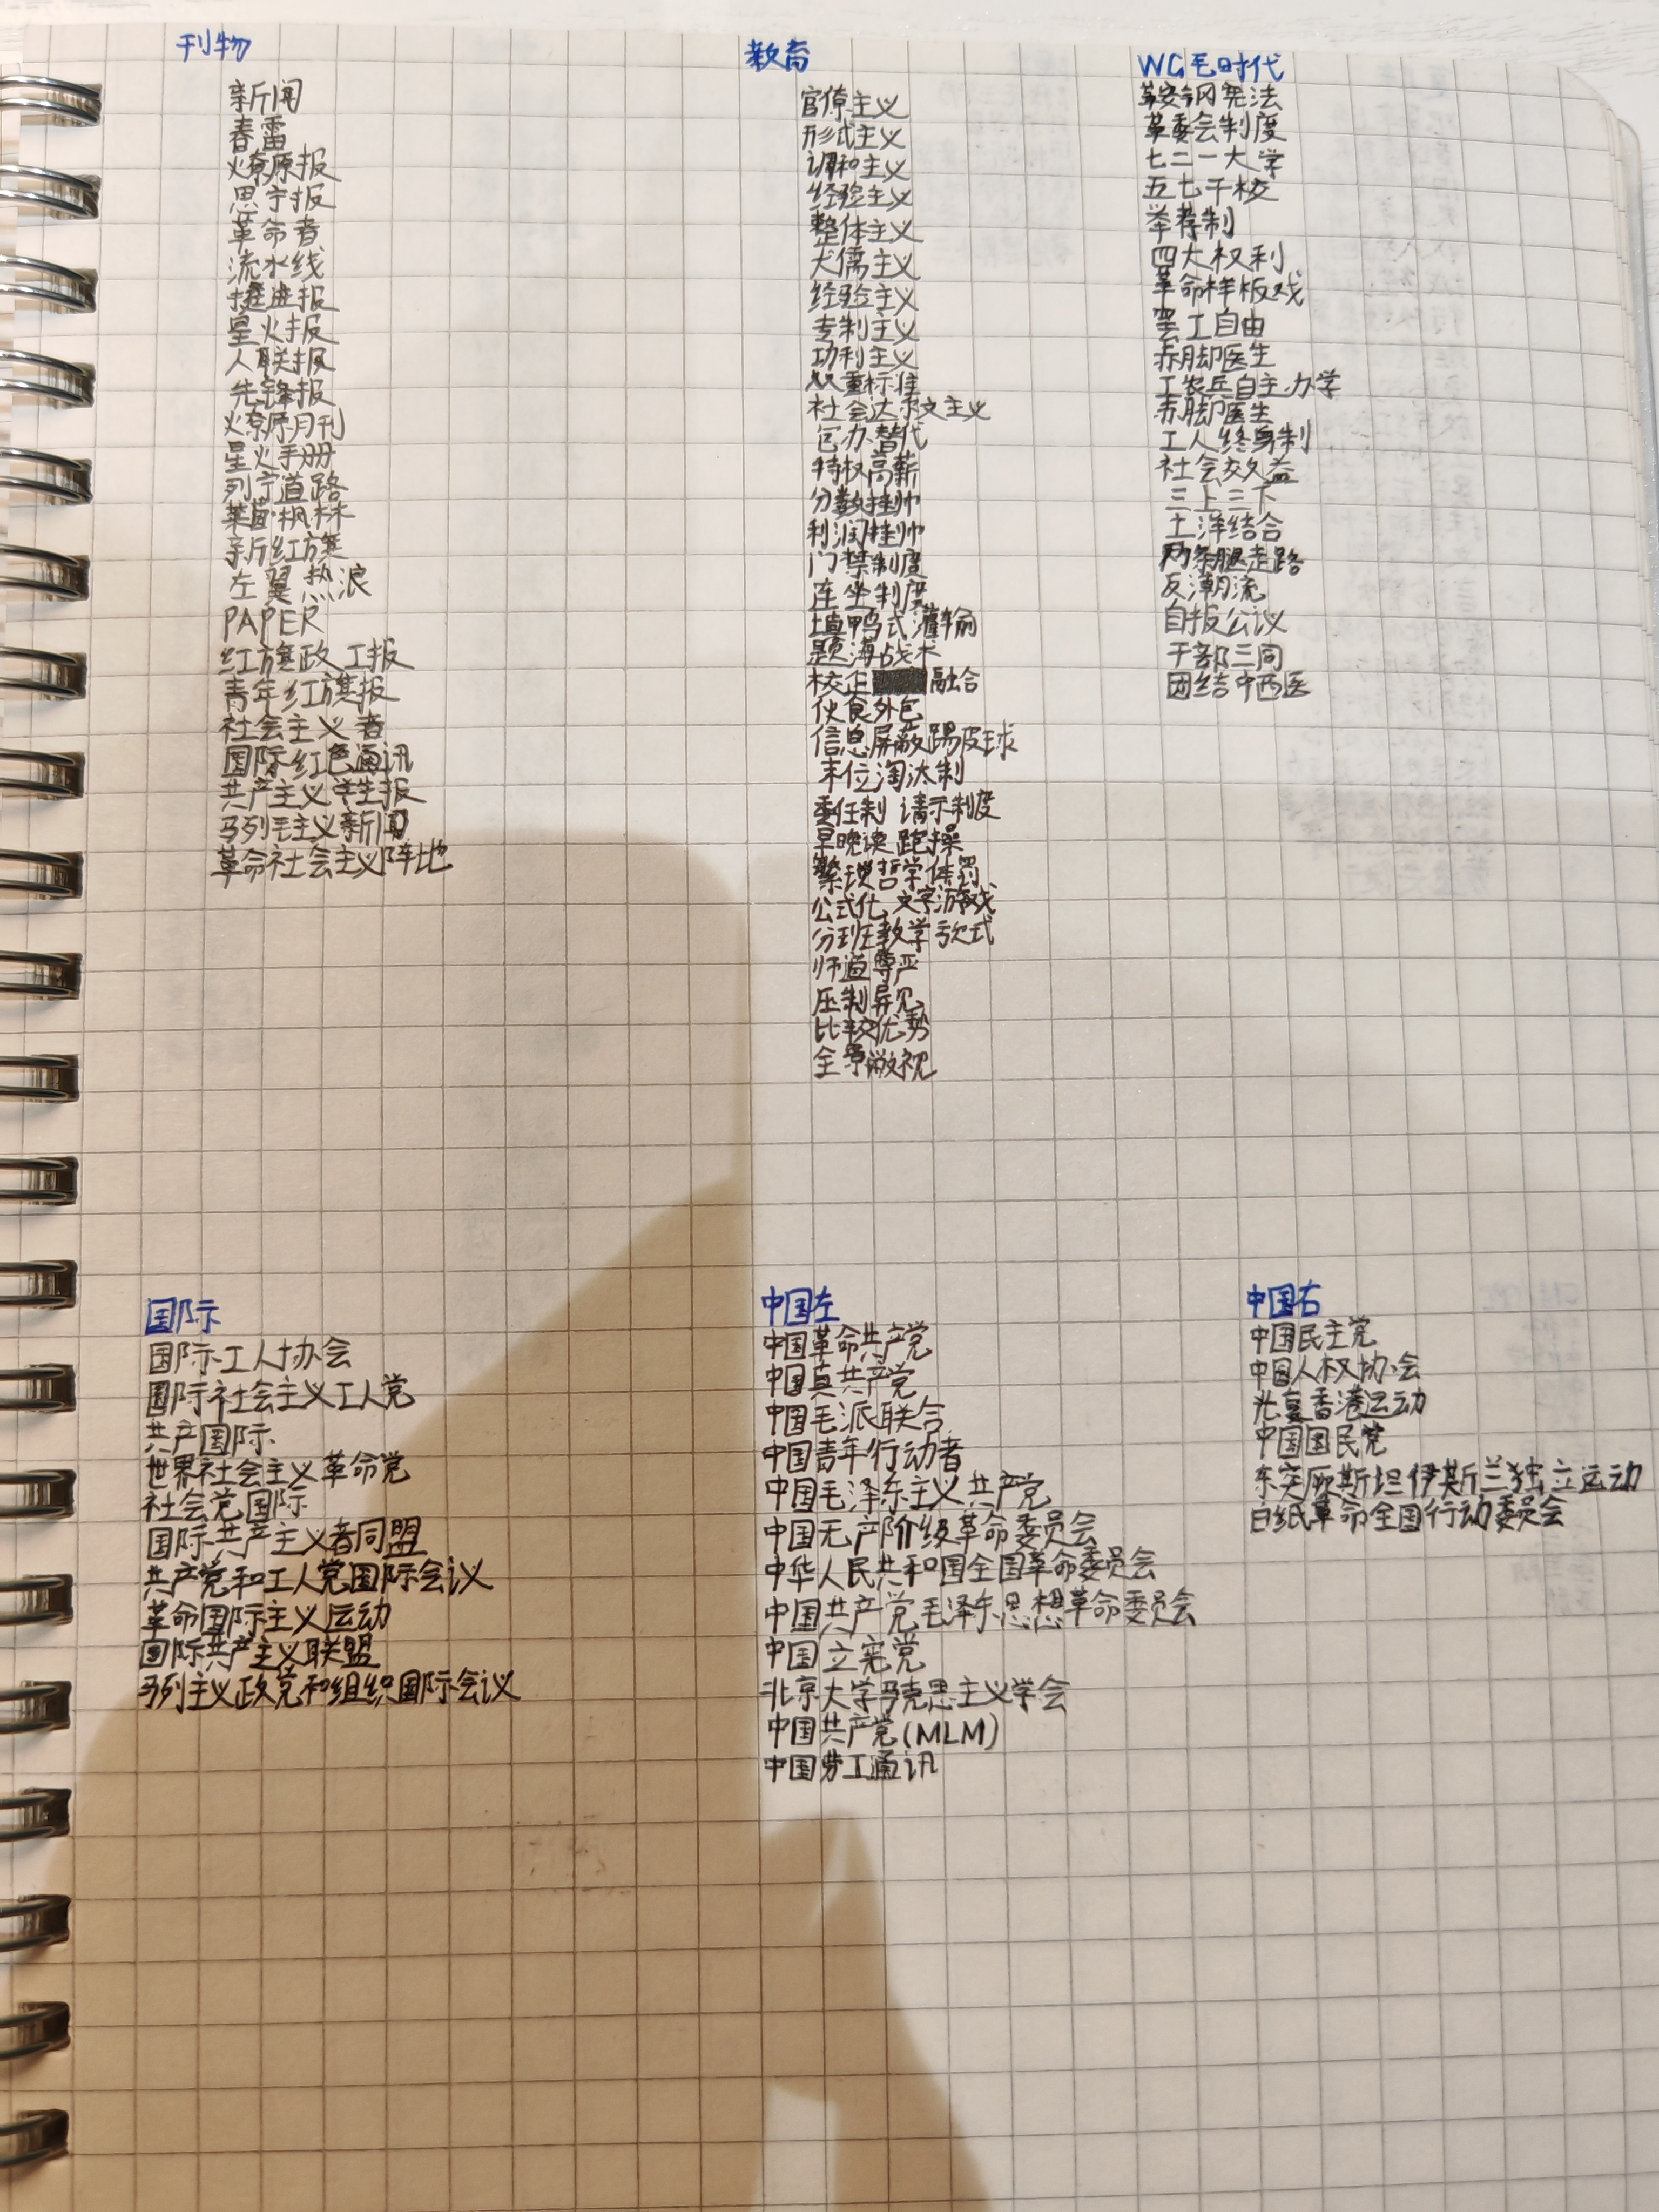 刊物
新闻
春雷
燎原报
思宁报
革命者
流水线
挺进报
星火报
人联报
先锋报
燎原月刊
星火手册
列宁道路
莱茵·枫林
新红旗
左翼热浪
PAPER
红旗政工报
青年红旗报
社会主义者
国际红色通讯
共产主义学生报
马列毛主义新闻
革命社会主义阵地
教育
官僚主义
形式主义
调和主义
经验主义
整体主义
犬儒主义
经验主义
专制主义
功利主义
双重标准
社会达尔文主义
包办替代
特权高薪
分数挂帅
利润挂帅
门禁制度
连坐制度
填鸭式灌输
题海战术
校企融合
伙食外包
信息屏蔽 踢皮球
末位淘汰制
委任制 请示制度
早晚读 跑操
繁琐哲学 体罚
公式化 文字游戏
分班教学
师道尊严
压制异见
比较优势
全景敞视
WG毛时代
鞍钢宪法
革委会制度
七二一大学
五七干校
举荐制
四大权利
革命样板戏
罢工自由
赤脚医生
工农兵自主办学
赤脚医生
工人终身制
社会效益
三上三下
土洋结合
两条腿走路
反潮流
自报公议
干部三同
团结中西医
国际
国际工人协会
国际社会主义工人党
共产国际
世界社会主义革命党
社会党国际
国际共产主义者同盟
共产党和工人党国际会议
革命国际主义运动
国际共产主义联盟
马列主义政党和组织国际会议
中国左
中国革命共产党
中国真共产党
中国毛派联合
中国青年行动者
中国毛泽东主义共产党
中国无产阶级革命委员会
中华人民共和国全国革命委员会
中国共产党毛泽东思想革命委员会
中国立宪党
北京大学马克思主义学会
中国共产党(MLM)
中国劳工通讯
中国右
中国民主党
中国人权协会
光复香港运动
中国国民党
东突厥斯坦伊斯兰独立运动
白纸革命全国行动委员会